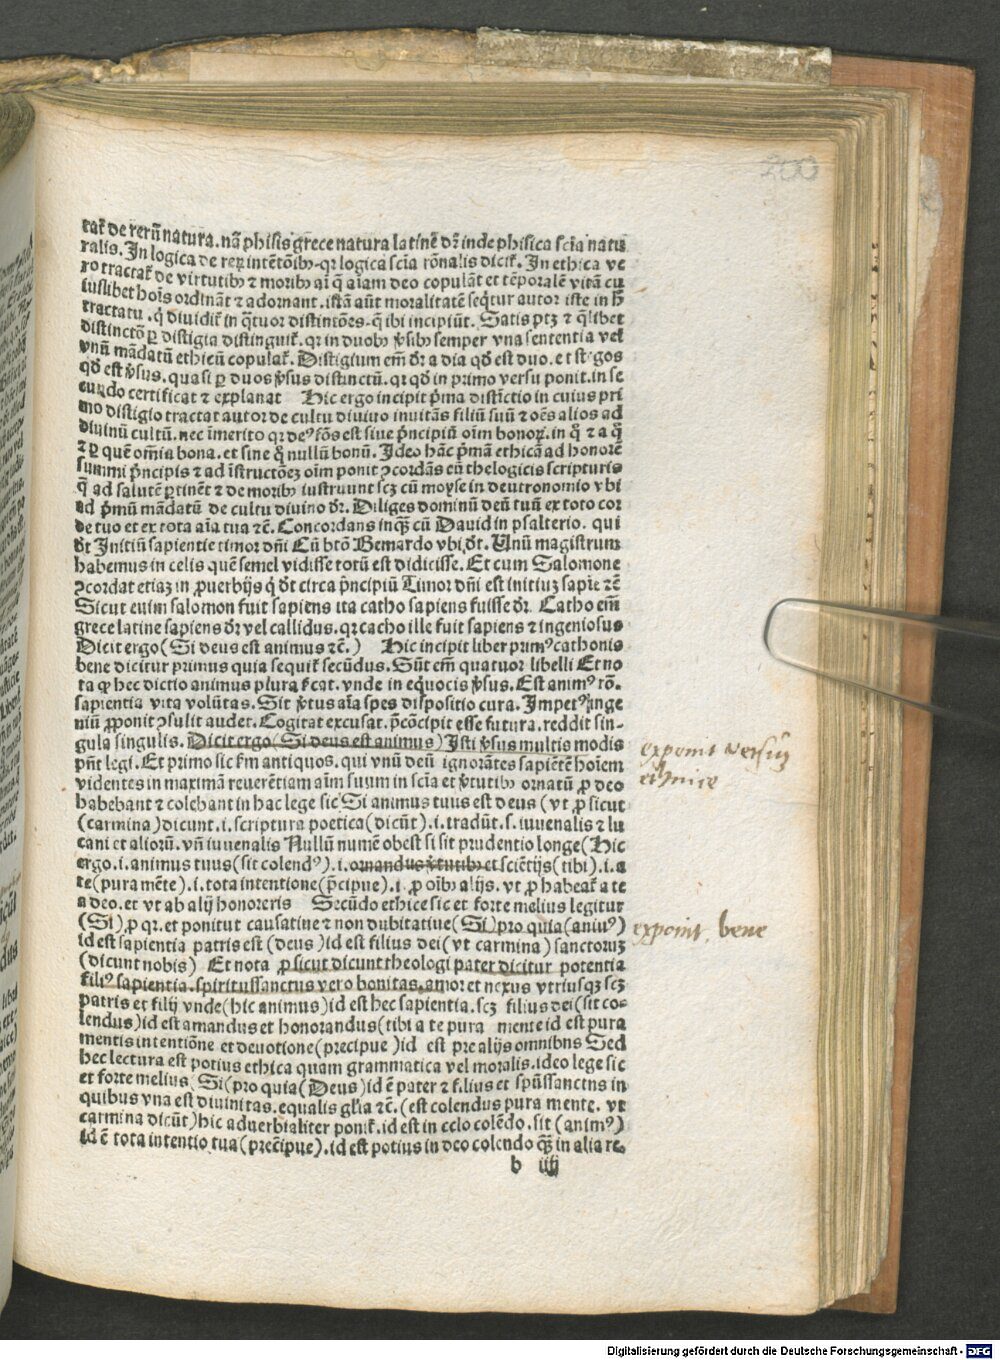 200
tat̄ de rerū natura. nā phisis grece natura latine d̄r inde phisica sciā natu
ralis. In logica de reꝝ intētōibꝫ. qꝛ logica sciā rōnalis dicit̄. In ethica ve
ro tractat̄ de virtutibꝫ ⁊ moribꝫ aī q̄ aīam deo copulāt et tēporalē vitā cu
iuslibet hoīs ordināt ⁊ adornant. istā aūt moralitatē seq̄tur autor iste in h̄
tractatu. q̄ diuidit̄ in q̄tuor distinctōes. q̄ ibi incipiūt. Satis ptꝫ ⁊ q̄libet
distinctō ꝑ distigia distinguit̄. qꝛ in duobꝫ v̄sibꝫ semper vna sententia vel
vnū mādatū ethicū copulat̄. Distigium em̄ d̄r a dia qd̄ est duo. et stigos
qd̄ est v̄sus. quasi ꝑ duos v̄sus distinctū. qꝛ qd̄ in primo versu ponit. in se
cundo certificat ⁊ explanat Hic ergo incipit p̄ma distīctio in cuius pri
mo distigio tractat autor de cultu diuino inuitās filiū suū ⁊ oēs alios ad
diuinū cultū. nec īmerito qꝛ deꝰ fōs est siue p̄ncipiū oīm bonoꝝ. in q̄ ⁊ a q̄
⁊ ꝑ quē om̄ia bona. et sine q̄ nullū bonū. Ideo hāc p̄mā ethicā ad honorē
summi p̄ncipis ⁊ ad īstructōeꝫ oīm ponit ꝯcordās cū thelogicis scripturis
q̄ ad salutē ꝑtinēt ⁊ de moribꝫ iustruunt scꝫ cū moyse in deutronomio vbi
ad p̄mū mādatū de cultu diuino d̄r. Diliges dominū deū tuū ex toto cor
de tuo et ex tota aīa tua ⁊c̄. Concordans inqꝫ cū Dauid in psalterio. qui
d̄t Initiū sapientie timor dn̄i Cū btō Bernardo vbi d̄t. Unū magistrum
habemus in celis quē semel vidisse totū est didicisse. Et cum Salomone
ꝯcordat etiaꝫ in ꝓuerbijs q̄ d̄t circa p̄ncipiū Timor dn̄i est initiuꝫ sapīe ⁊c̄
Sicut enim salomon fuit sapiens ita catho sapiens fuisse d̄r. Catho em̄
grece latine sapiens d̄r vel callidus. qꝛ cacho ille fuit sapiens ⁊ ingeniosus
Dicit ergo (Si deus est animus ⁊c̄.) Hic incipit liber primꝰ cathonis
bene dicitur primus quia sequit̄ secūdus. Sūt em̄ quatuor libelli Et no
ta qꝙ hec dictio animus plura f̄cat. vnde in equocis v̄sus. Est animꝰ rō.
sapientia vita volūtas. Sit v̄tus aīa spes dispositio cura. Impetꝰ inge
niū ꝓponit ꝯsulit audet. Cogitat excusat. p̄cōcipit esse futura. reddit sin-
gula singulis. Dicit ergo (Si deus est animus) Isti v̄sus multis modis
pn̄t legi. Et primo sic f̄m antiquos. qui vnū deū ignorātes sapiētē hoīem
videntes in maximā reuerētiam aīm suum in sciā et v̄tutibꝫ ornatū ꝓ deo
habebant ⁊ colebant in hac lege sic Si animus tuus est deus (vt ꝓ sicut
(carmina) dicunt. i. scriptura poetica (dicūt). i. tradūt. s. iuuenalis ⁊ lu
cani et aliorū. vn̄ iuuenalis Nullū numē obest si sit prudentio longe (Hic
ergo. i. animus tuus (sit colendꝰ). i. ornandus v̄tutibꝫ et sciētijs (tibi). i. a
te (pura mēte). i. tota intentione (p̄cipue). i. ꝓ oībꝫ alijs. vt ꝓ habeat̄ a te
a deo. et vt ab alij honoreris Secūdo ethice sic et forte melius legitur
(Si) ꝓ qꝛ. et ponitur causatine ⁊ non dubitatiue (Si) pro quia (aniuꝰ)
id est sapientia patris est (deus) id est filius dei (vt carmina) sanctoruꝫ
(dicunt nobis) Et nota ꝓ sicut dicunt theologi pater dicitur potentia
filiꝰ sapientia. spiritussanctus vero bonitas. amor et nexus vtriusqꝫ scꝫ
patris et filij vnde (hic animus) id est hec sapientia. scꝫ filius dei (sit co-
lendus) id est amandus et honorandus (tibi a te pura mente id est pura
mentis intentiōne et deuotione (precipue) id est pre alijs omnibns Sed
hec lectura est potius ethica quam grammatica vel moralis. ideo lege sic
et forte melius (Si (pro quia (Deus) id ē pater ⁊ f.lius et spūssanctns in
quibus vna est diuinitas. equalis gl̄ia ⁊c̄. (est colendus pura mente. vt
carmina dicūt) hic aduerbialiter ponit̄. id est in celo colēdo. sit (animꝰ)
id ē tota intentio tua (preēipue). id est potius in deo colendo qꝫ in alia re.
b iiij
exponit versū
ethnice
exponit. bene
Digitalisierung gefördert durch die Deutsche Forschungsgemeinschaft - DFG